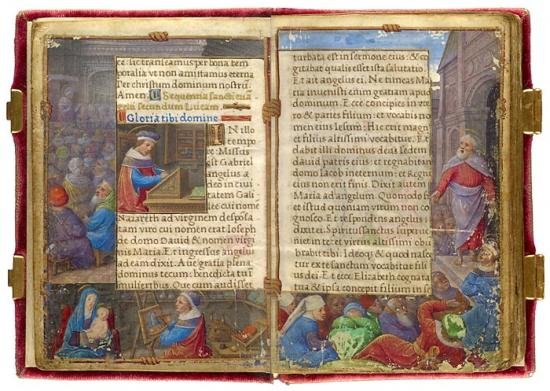 ce sic transeamus per bona tem
poralia vt non amittamus eterna
Per christum dominum nostrū
Amen Sequentia sancti eua
gelii secundum Lucam
Gloria tibi domine
IN illo
tempo
re: Missus
est Gabriel
angelus a
deo in ciui
tatem Gali
lee cui nomen
Nazareth ad virginem desponsa
tam viro cui nomen erat Ioseph
de domo Dauid & nomen virgi
nis Maria. Et ingressus angelus
ad eam dixit. Aue gratia plena
dominus tecum: benedicta tu in
mulieribus. Que cum audisset
turbata est in sermone eius: & co
gitabat qualis esset ista salutatio
Et ait angelus ei. Ne timeas Ma
ria inuenisti enim gratiam apud
dominum. Et ecce concipies in vte
ro & paries filium: et vocabis no
men eius Iesum: Hic erit magnus
et filius altissimi vocabitur. Et
dabit illi dominus deus sedem
dauid patris eius: et regnabit in
domo Iacob ineternum: et Regni
eius non erit finis Dixit autem
Maria ad angelum. Quomodo fi
et istud quoniam virum non co
gnosco. Et respondens angelus
dixit ei. Spiritus sanctus superue
niet in te et virtus altissimi obu
brabit tibi. Ideoq; & quod nasce
tur ex te sanctum vocabitur fili
us dei. Et ecce Elizabeth cognata
tua & ipsa concepit filium in se